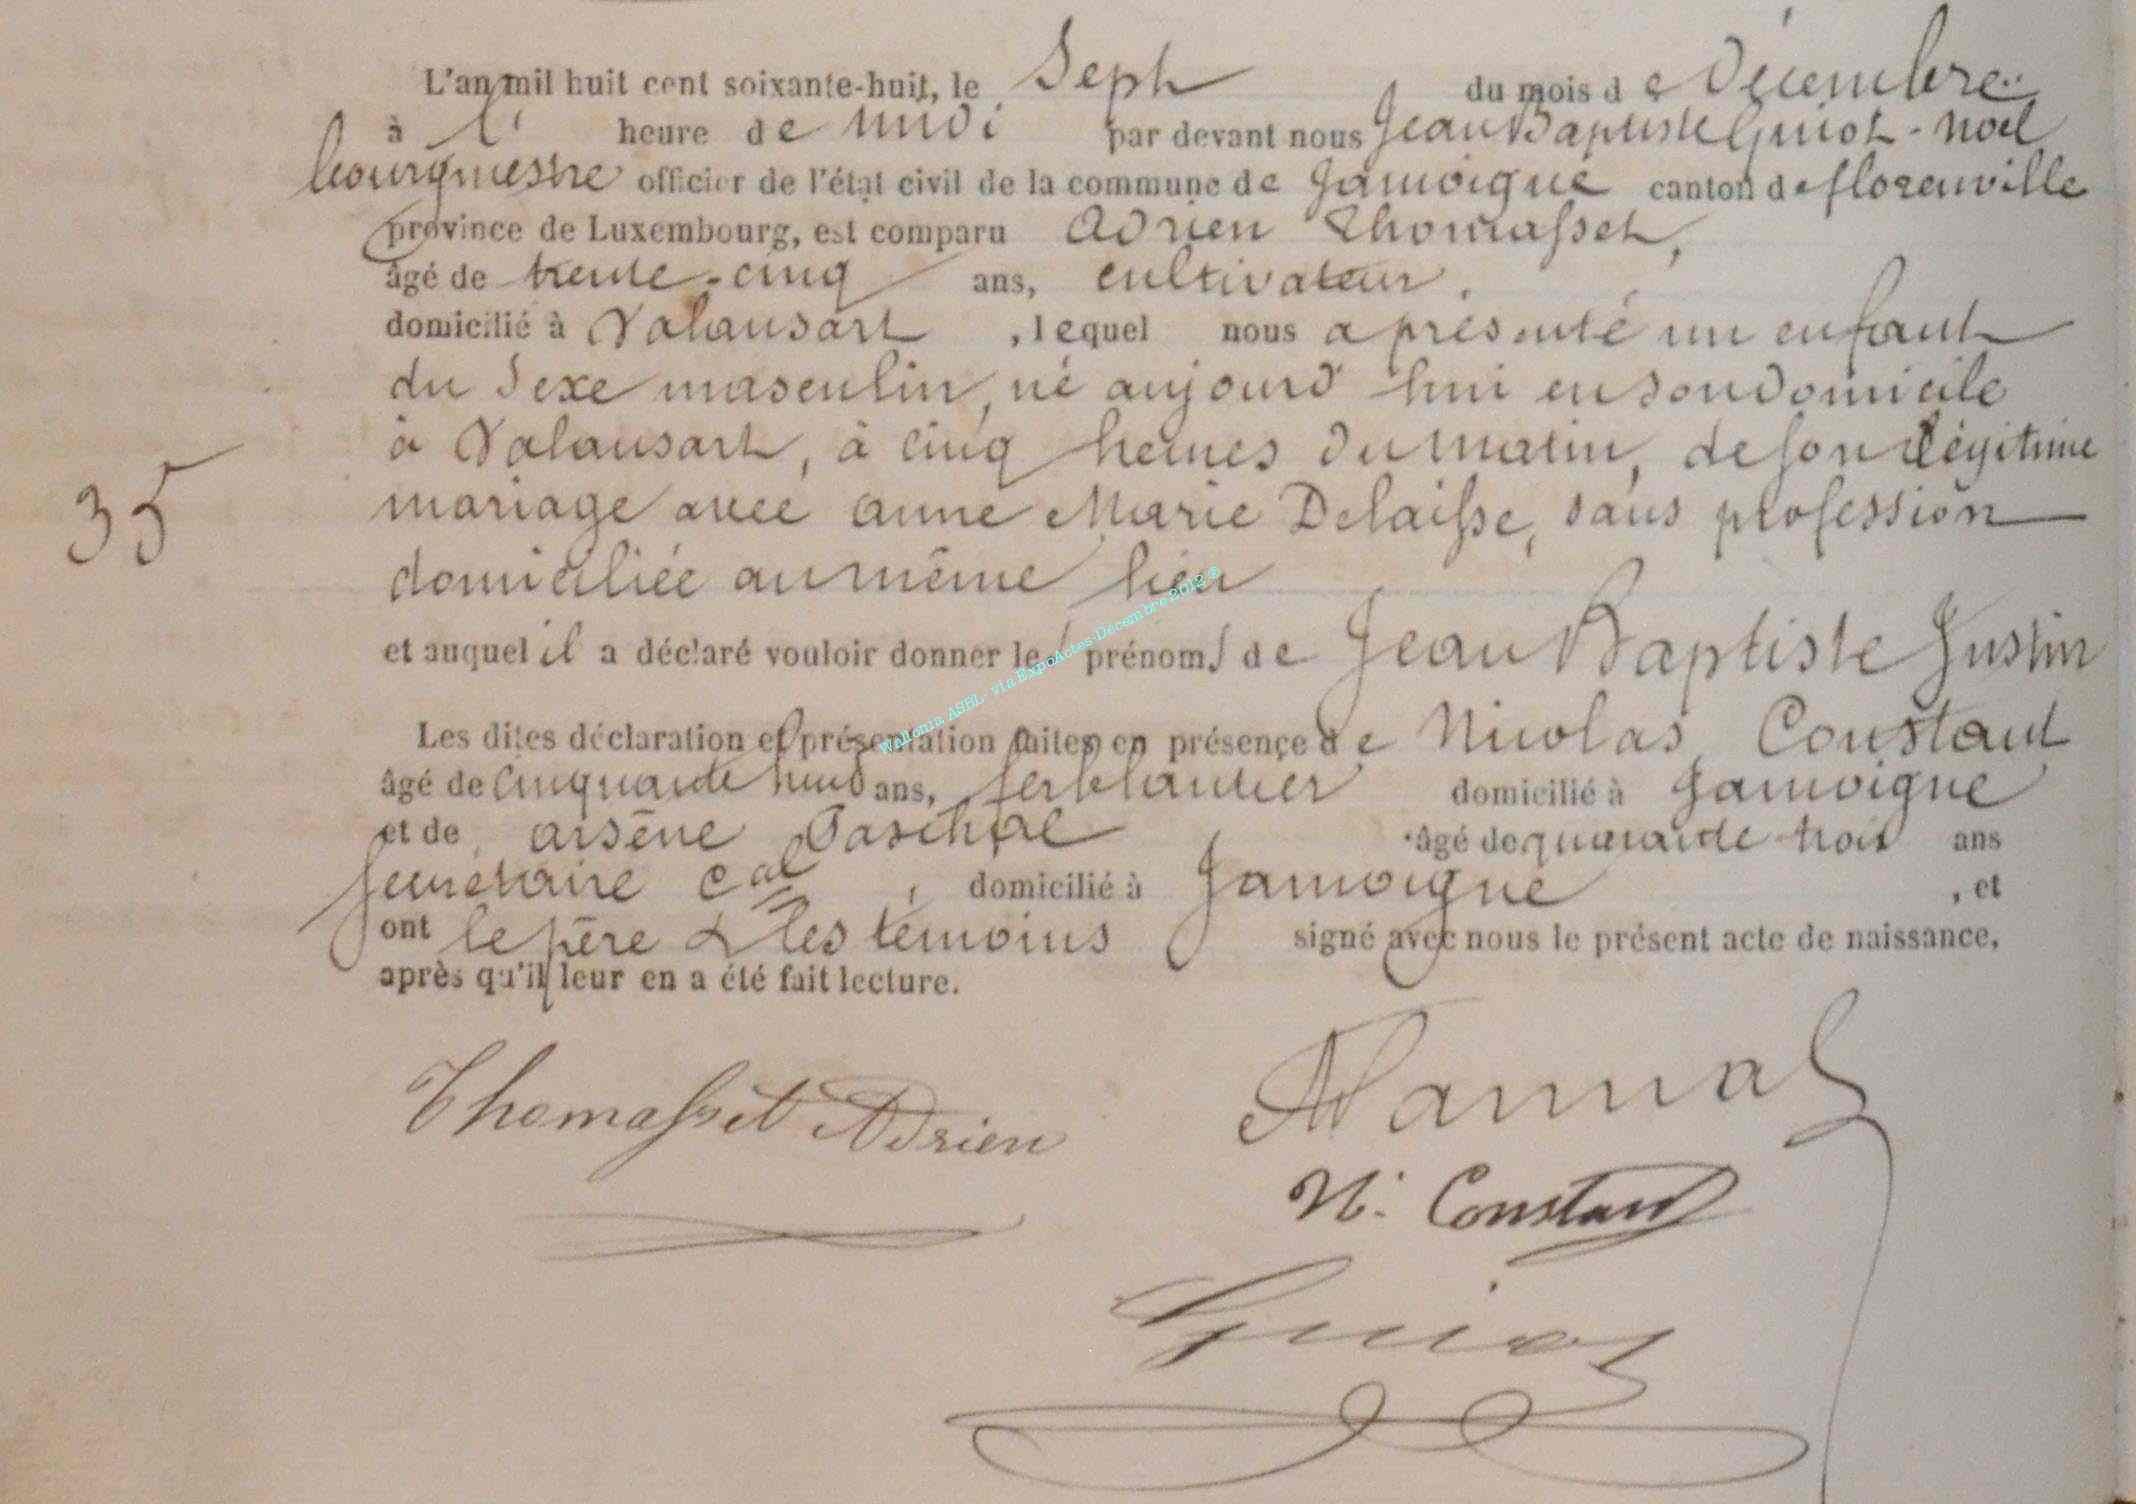 L'an mil huit cent soixante-huit, le Sept du mois de Décembre
à l' heure de midi par devant nous Jean Baptiste Guiot-Noël
bourgmestre officier de l'état civil de la commune de Jamoigne canton de florenville
province de Luxembourg, est comparu Adrien Thomasset,
âgé de trente-cinq ans, cultivateur,
domicilié à Valansart, lequel nous a présenté un enfant
du Sexe masculin, né aujourd'hui en son domicile
à Valansart, à cinq heures du matin, de son légitime
35
mariage avec anne Marie Delaisse, sans profession
domiciliée au même lieu
et auquel il a déclaré vouloir donner les prénoms de Jean Baptiste Justin
Les dites déclaration et présentation faites en présence de Nicolas Constant
âgé de cinquante huit ans, ferblantier domicilié à Jamoigne
et de arsène âgé de quarante trois ans
secrétaire cal, domicilié à Jamoigne, et
ont le père & les témoins signé avec nous le présent acte de naissance,
après qu'il leur en a été fait lecture.
Thomasset Adrien
N. Constant
Guiot
Wallonia ASBL - via ExpoActes-Décembre 2012 ®